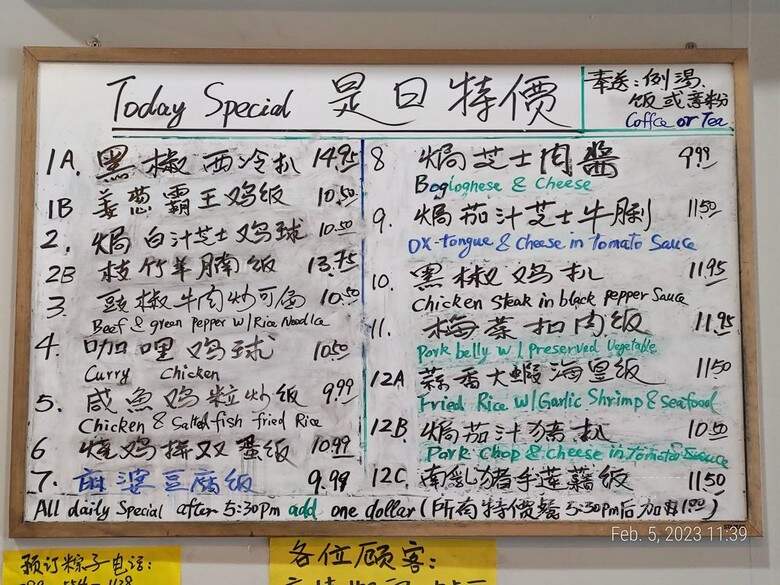 Today Special 是日特價
奉送:例湯、
饭或意粉
Coffee or Tea
1A. 黑椒西冷扒 14.95
1B 姜葱霸王鸡饭 10.50
2. 焗白汁芝士鸡球 10.50
2B 枝竹羊腩饭 13.75
3. 豉椒牛肉炒河 10.50
Beef & green pepper w/ Rice Noodle
4. 咖哩鸡球 10.50
Curry Chicken
5. 咸魚鸡粒炒饭 9.99
Chicken & Salted fish fried Rice
6 烧鸡拼双蛋饭 10.99
7. 麻婆豆腐饭 9.99
8 焗芝士肉醬 9.99
Boglognese & Cheese
9. 焗茄汁芝士牛脷 11.50
Ox-tongue & Cheese in Tomato Sauce
10. 黑椒鸡扒 11.95
Chicken Steak in black pepper Sauce
11. 梅菜扣肉饭 11.95
Pork belly w/ Preserved Vegetable
12A 蒜香大蝦海皇饭 11.50
Fried Rice w/ Garlic Shrimp & Seafood
12B. 焗茄汁猪扒 10.50
Pork Chop & Cheese in Tomato Sauce
12C. 南乳猪手莲藕饭 11.50
All daily Special after 5:30pm add one dollar (所有特價餐 5:30pm后加 $1.00)
Feb. 5, 2023 11:39
预订粽子电话:
各位顾客: